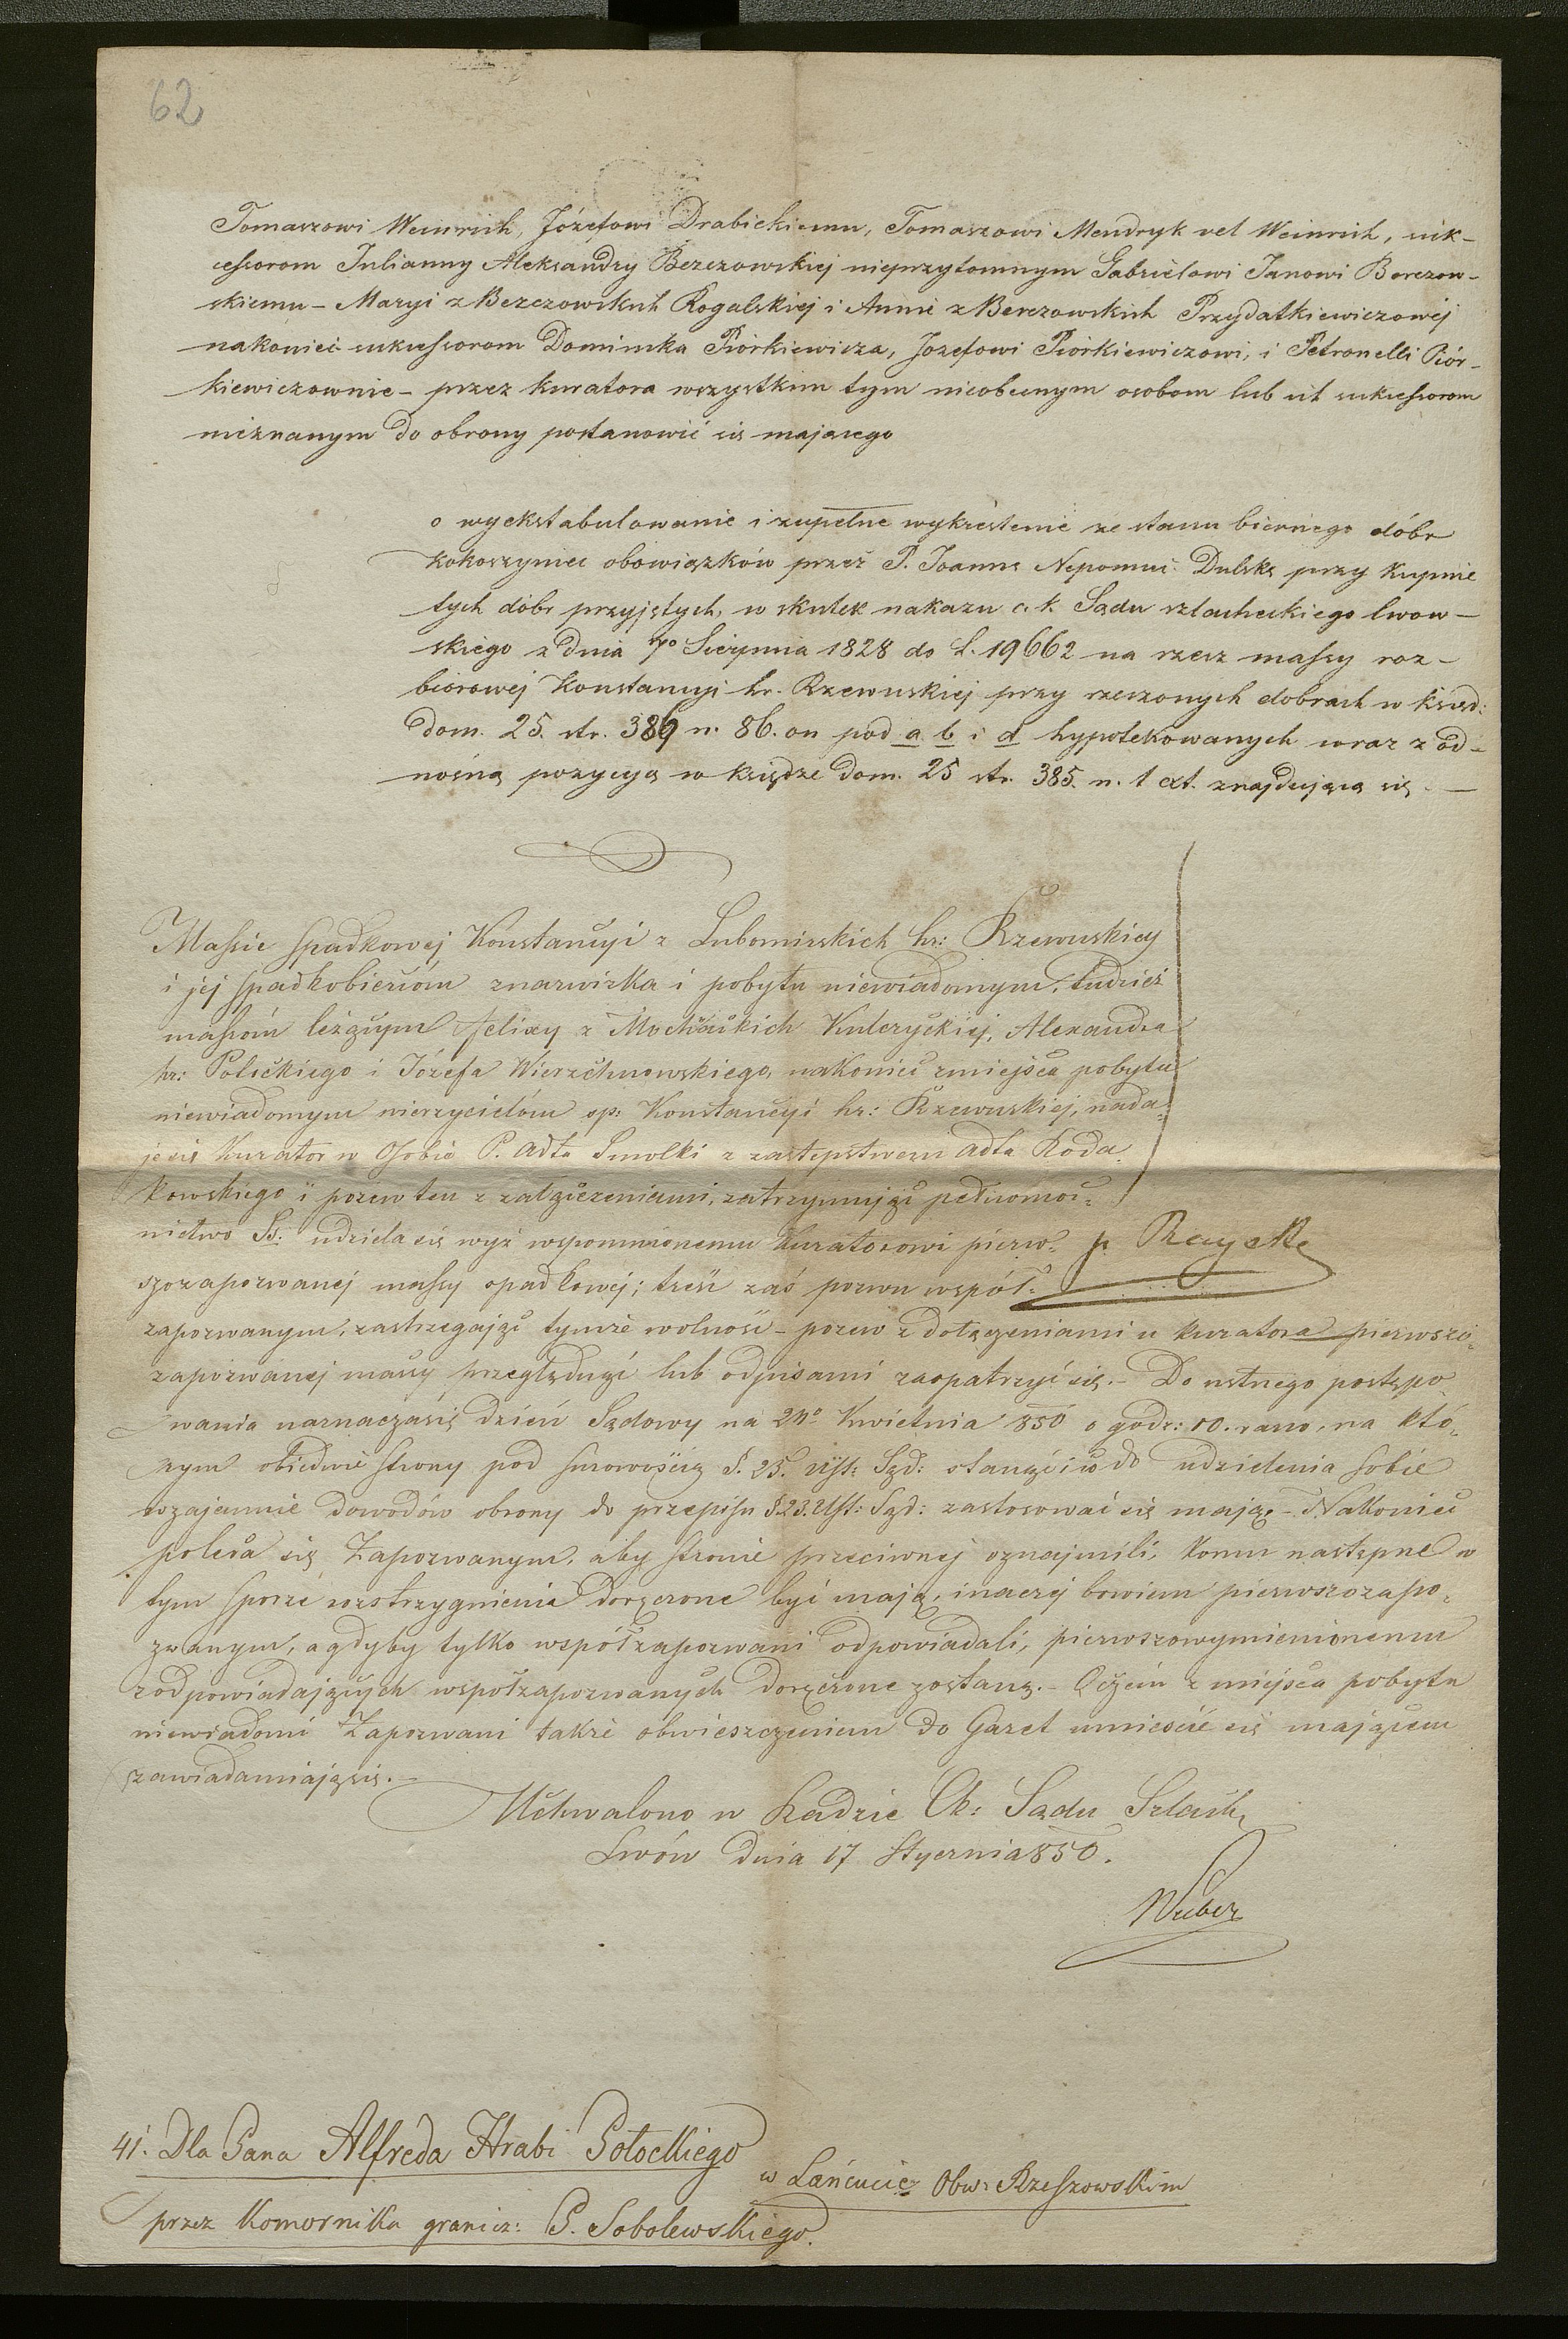 62
Tomaszowi Weinrich, Józefowi Drabickiemu, Tomaszowi Mendryk vel Weinrich, suk-
cessorom Julianny Aleksandry Berezowskiej nieprzytomnym Gabrielowi Janowi Berezow-
skiemu – Maryi z Berezowskich Rogalskiej i Annie z Berezowskich Przydatkiewiczowej
nakoniec sukcessorom Dominika Piórkiewicza, Józefowi Piórkiewiczowi, i Petronelli Piór-
kiewiczownie – przez kuratora wszystkim tym nieobecnym osobom lub ich sukcessorom
nieznanym do obrony postanowić się mającego
o wyekstabulowanie i zupełne wykreślenie ze stanu biernego dóbr
Kokoszyniec obowiązków przez P. Joannę Nepomuc. Dulską przy kupnie
tych dóbr przyjętych, w skutek nakazu c. k. Sądu szlacheckiego lwow-
skiego z dnia 7o Sierpnia 1828 do L. 19662 na rzecz massy roz-
biorowej Konstancyi hr. Rzewuskiej przy rzeczonych dobrach w księd:
dom. 25. str. 389 n. 86. on pod a b i d hypotekowanych wraz z od-
nośną pozycyą w księdze dom. 25 str. 385. n. 1 ext. znajdującą się. –
Massie spadkowej Konstancyi z Lubomirskich hr: Rzewuskiey
i jej spadkobiercóm z nazwiska i pobytu niewiadomym, tudzież
massóm leżącym Felixy z Mochnackich Kulczyckiej, Alexandra
hr: Potockiego i Józefa Wierzchnowskiego, nakoniec z miejsca pobytu
niewiadomym wierzycielóm sp: Konstancyi hr: Rzewuskiej, nada-
je się Kurator w Osobie P. Adta Smolki z zastępstwem Adta Roda-
kowskiego i pozew ten z załączeniami, zatrzymując pełnomoc-
nictwo Ss: udziela się wyż wspomnionemu Kuratorowi pierw-
szozapozwanej massy spadkowej; treść zaś pozwu współ-
zapozwanym, zastrzegając tymże wolność – pozew z dołączeniami u kuratora pierwszo-
zapozwanej massy przeglądnąć lub odpisami zaopatrzyć się. – Do ustnego postępo-
wania naznacza się dzień Sądowy na Kwietnia 850 o godz: 10. rano, na któ-
rym obiedwie strony pod surowością §. 25. Ust: Sąd: stanąć i co do udzielenia sobie
wzajemnie dowodów obrony do przepisu §. 23. Ust: Sąd: zastosować się mają – Nakoniec
poleca się Zapozwanym, aby stronie przeciwnej oznajmili, komu następne w
tym sporze rozstrzygnienie doręczone być mają, inaczej bowiem pierwszozapo-
zwanym, a gdyby tylko współzapozwani odpowiadali, pierwszowymienionemu
z odpowiadających współzapozwanych doręczone zostaną. – O czem z miejsca pobytu
niewiadomi Zapozwani także obwieszczeniem do Gazet umieścić się mającem
zawiadamiają się. –
Uchwalono w Radzie Ck: Sądu Szlach.
Lwów dnia 17 Stycznia 850.
41. Dla Pana Alfreda Hrabi Potockiego
w Łańcucie Obw: Rzeszowskim
przez Komornika granicz: P. Sobolewskiego.